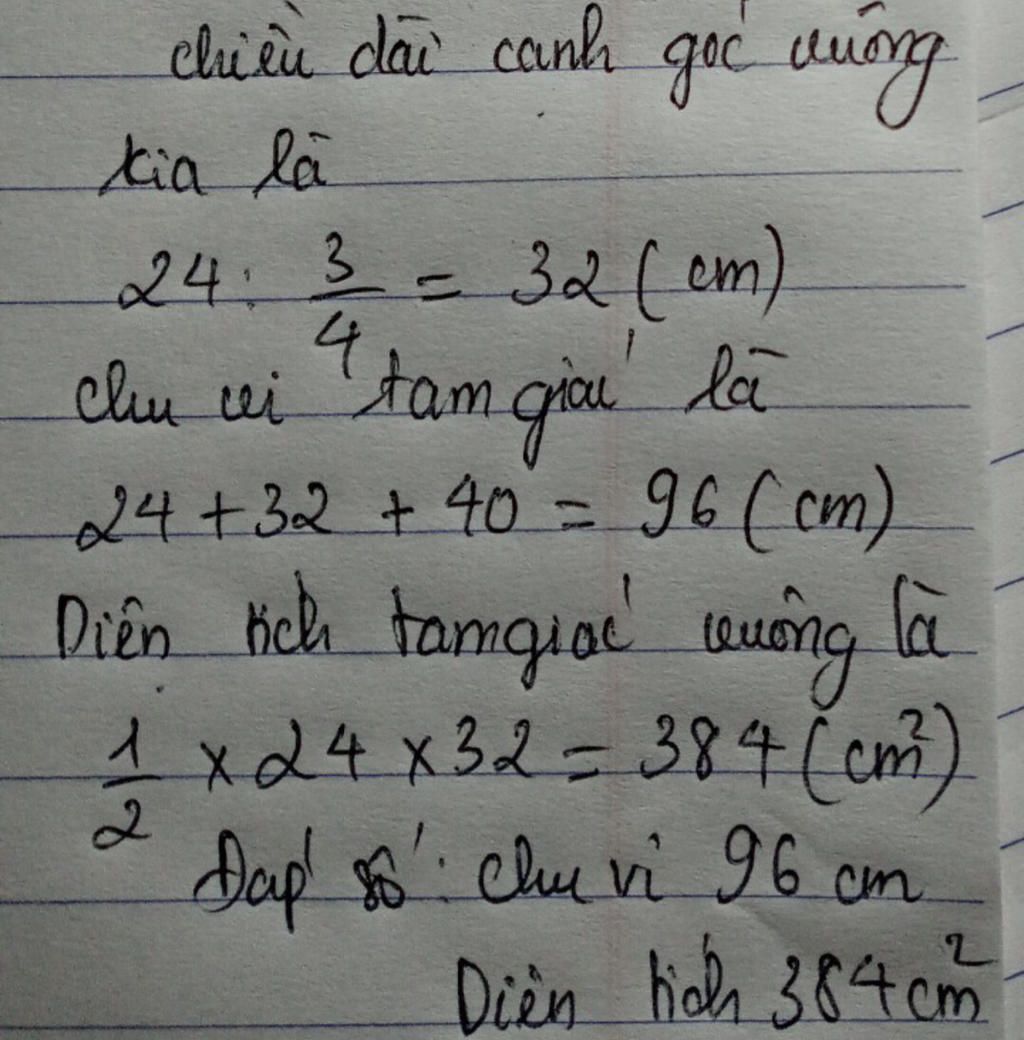 chiều dài cạnh góc vuông
kia là
24 : 3/4 = 32 (cm)
chu vi tam giác là
24 + 32 + 40 = 96 (cm)
Diện tích tam giác vuông là
1/2 × 24 × 32 = 384 (cm²)
Đáp số : chu vi 96 cm
Diện tích 384 cm²